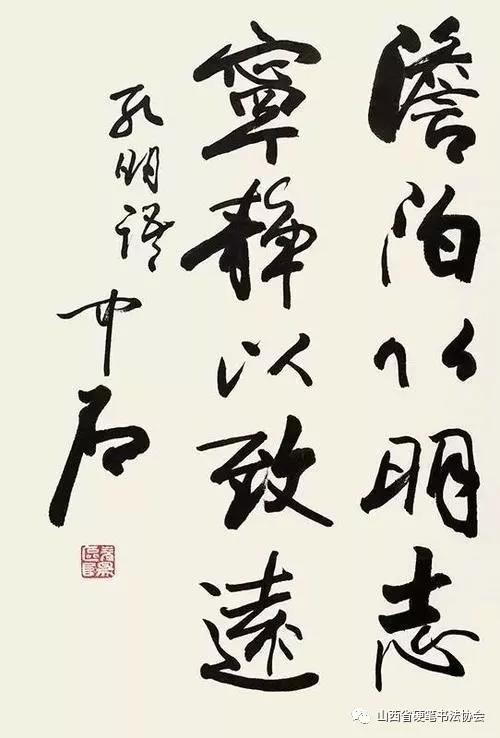 澹泊以明志
寧靜以致遠
孔明語
中石
山西省硬笔书法协会